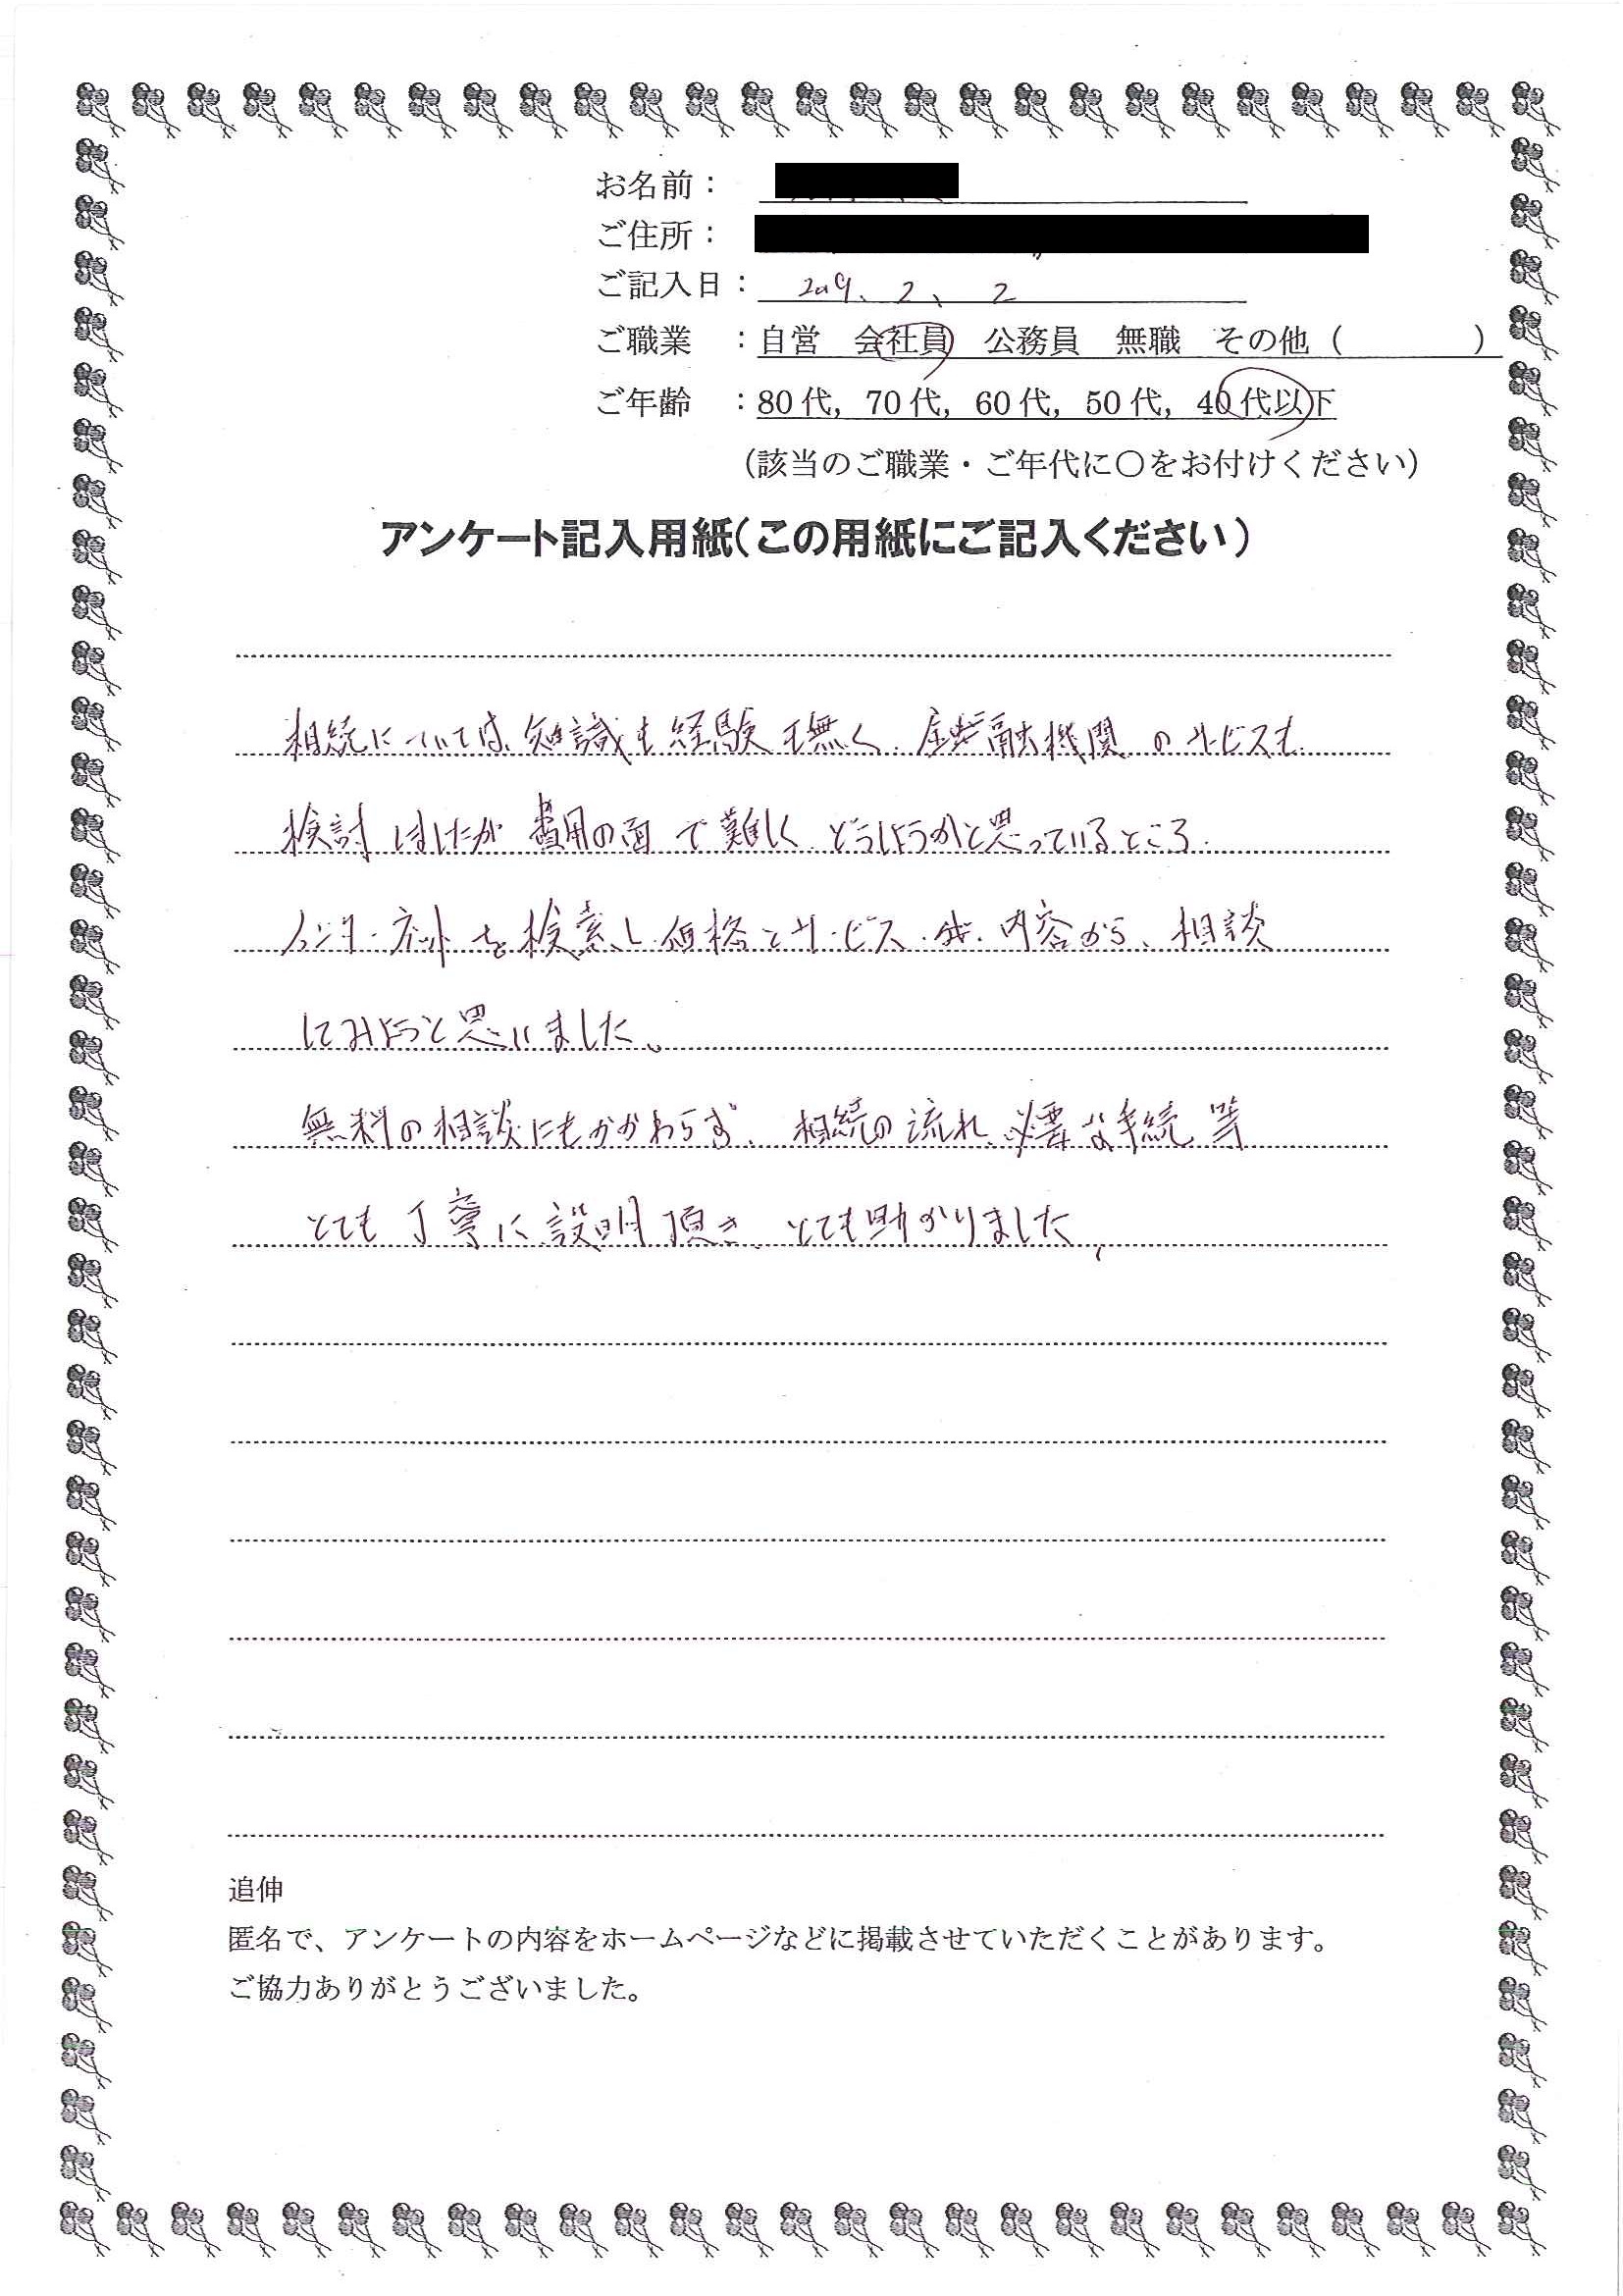 お名前：
ご住所：
ご記入日： 2019、2、2
ご職業 ：自営 会社員 公務員 無職 その他（ ）
ご年齢 ：80代，70代，60代，50代，40代以下
（該当のご職業・ご年代に〇をお付けください）
アンケート記入用紙（この用紙にご記入ください）
相続については、知識も経験も無く、金融機関のサービスも
検討はしたが費用の面で難しく、どうしようかと思っているところ、
インターネットを検索し価格とサービス 内容から、相談
してみようと思いました。
無料の相談にもかかわらず、相続の流れ、必要な手続等
とても丁寧に説明頂き、とても助かりました、
追伸
匿名で、アンケートの内容をホームページなどに掲載させていただくことがあります。
ご協力ありがとうございました。